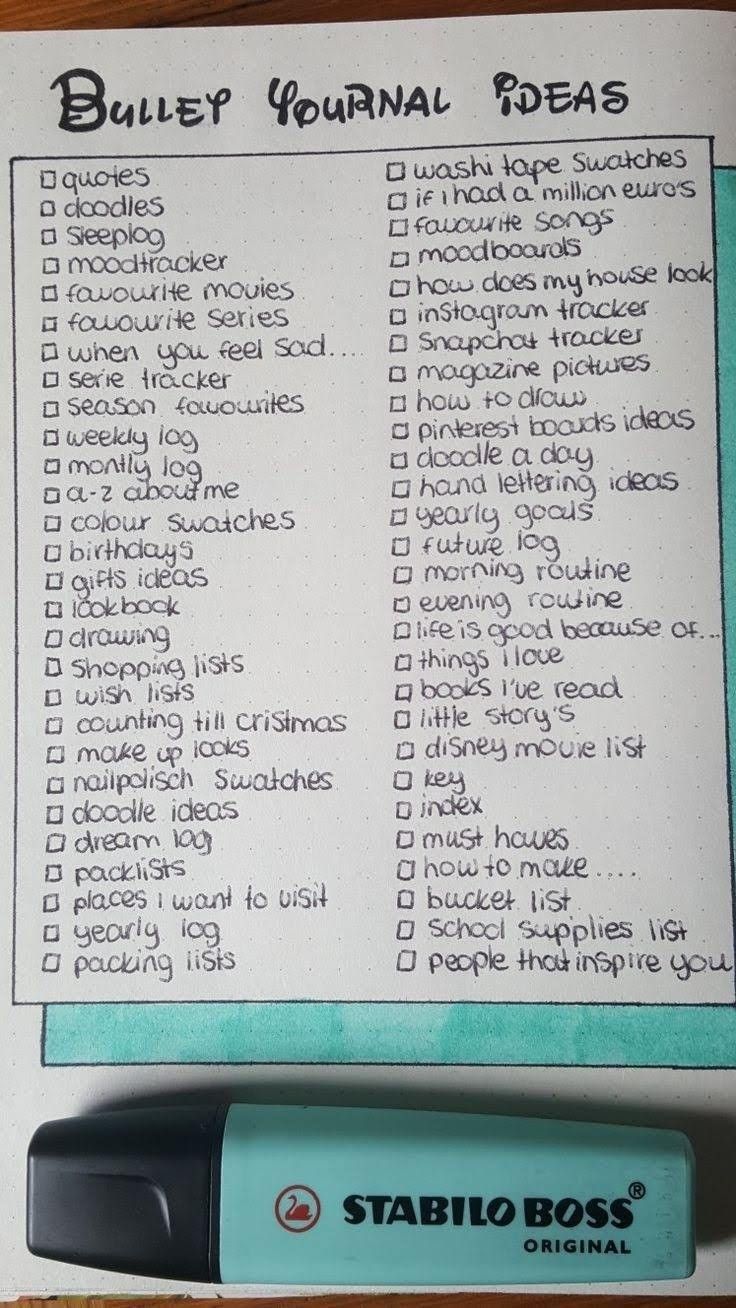 Bullet Journal Ideas
quotes
doodles
Sleeplog
moodtracker
favourite movies
favourite series
when you feel sad....
serie tracker
season favourites
weekly log
montly log
a-z about me
colour swatches
birthdays
gifts ideas
lookbook
drawing
shopping lists
wish lists
counting till cristmas
make up looks
nailpolisch swatches
doodle ideas
dream log
packlists
places i want to visit
yearly log
packing lists
washi tape swatches
if i had a million euro's
favourite songs
moodboards
how does my house look
instagram tracker
Snapchat tracker
magazine pictures
how to draw
pinterest boards ideas
doodle a day
hand lettering ideas
yearly goals
future log
morning routine
evening routine
life is good because of...
things i love
books i've read
little story's
disney movie list
key
index
must haves
how to make....
bucket list
school supplies list
people that inspire you
STABILO BOSS®
ORIGINAL